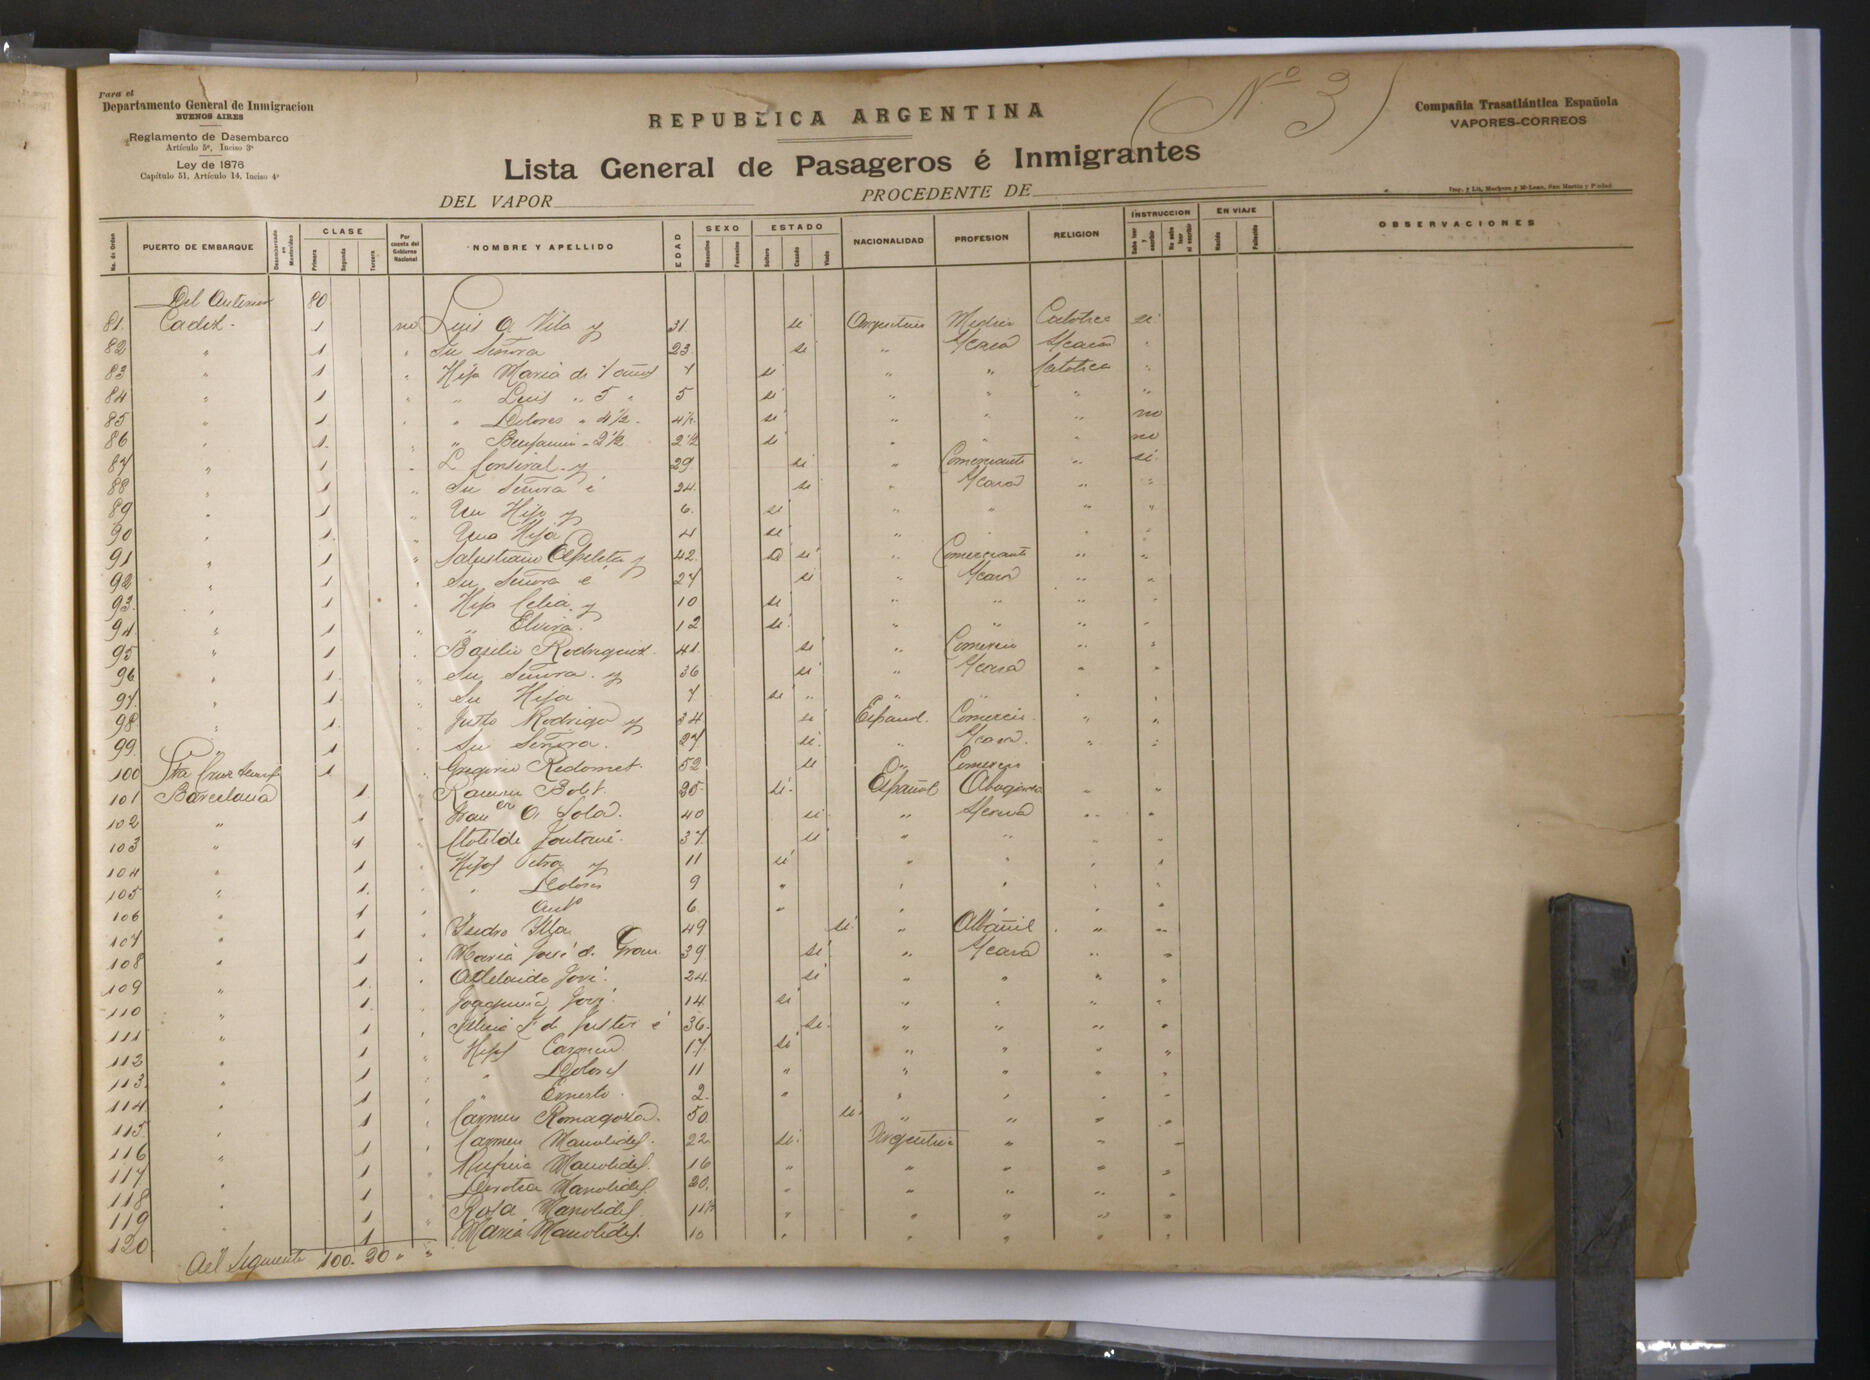 Para el
Departamento General de Inmigracion
BUENOS AIRES
Reglamento de Desembarco
Artículo 5º, Inciso 3º
Ley de 1876
Capítulo 51, Artículo 14, Inciso 4º
REPUBLICA ARGENTINA
(Nº 3)
Compañia Trasatlántica Española
VAPORES-CORREOS
Lista General de Pasageros é Inmigrantes
DEL VAPOR PROCEDENTE DE
No. de Orden PUERTO DE EMBARQUE Desembarcado en Montevideo CLASE Primera Segunda Tercera Por cuenta del Gobierno Nacional NOMBRE Y APELLIDO EDAD SEXO Masculino Femenino ESTADO Soltero Casado Viudo NACIONALIDAD PROFESION RELIGION INSTRUCCION Sabe leer y escribir No sabe leer ni escribir EN VIAJE Nacido Fallecido OBSERVACIONES
Del Anterior 80
81. Cadiz. 1 no Luis A. Vila y 31. si Argentino Medico Catolica si
82 " 1 " Su Señora 23. si " S/casa "
83 " 1 " Hija Maria de 7 años 7 si " " Catolica "
84 " 1 " " Luis " 5 " 5 si " " " "
85 " 1 " " Dolores " 4½. 4½ si " " " no
86 " 1. " " Benjamin " 2½ 2½ si " " " no
87 " 1 " 29 si " Comerciante " si
88 " 1 " Su Señora é 24. si " S/casa " "
89 " 1 " Un Hijo y 6. si " " " "
90 " 1 " Una Hija 4 si " " " "
91 " 1 " Salustiano y 42. si " Comerciante " "
92 " 1 " Su Señora é 27 si " S/casa " "
93. " 1 " Hija Celia y 10 si " " " "
94. " 1 " " Elvira. 12 si " " " "
95 " 1 " Basilio Rodriguez. 41. si " Comercio " "
96 " 1. " Su Señora. y 36 si " S/casa " "
97. " 1. " Su Hija 7. si " " " "
98. " 1. " Justo Rodrigo y 34 si Español. Comercio " "
99. " 1 " Su Señora. 27 si. " S/casa. " "
100 Sta Cruz 1 " Gregorio Redomet. 52 si " Comercio
101 Barcelona 1. " Ramon 35. si. Español Abogado " "
102 " 1 " Sola. 40 si " S/casa " "
103 " 1 " Clotilde 37. si " " " "
104 " 1 " Hijos y 11 si " " " "
105 " 1. " " Dolores 9 " " " " "
106 " 1 " Antº 6. " " " " "
107 " 1 " Isidro 49 si. " Albañil " "
108 " 1 " Maria José d. Grau 39 si " S/casa " "
109 " 1. " Adelaida 24. si " " " "
110 " 1. " Joaquina 14. si " " " "
111 " 1 " é 36. si. " " " "
112 " 1 " Hijos Carmen 17. si " " " "
113. " 1 " " Dolores 11 " " " " "
114 " 1 " " Ernesto. 2. " " " " "
115. " 1 " Carmen Romagosa. 50. si. " " " "
116 " 1 " Carmen Manolides. 22. si. Argentina " " "
117 " 1 " Manolides. 16 " " " " "
118 " 1 " Manolides. 20. " " " " "
119 " 1 " Rosa Manolides. 11½ " " " " "
120 1 " Maria Manolides. 10 " " " " "
Al Siguiente 100. 20 " "